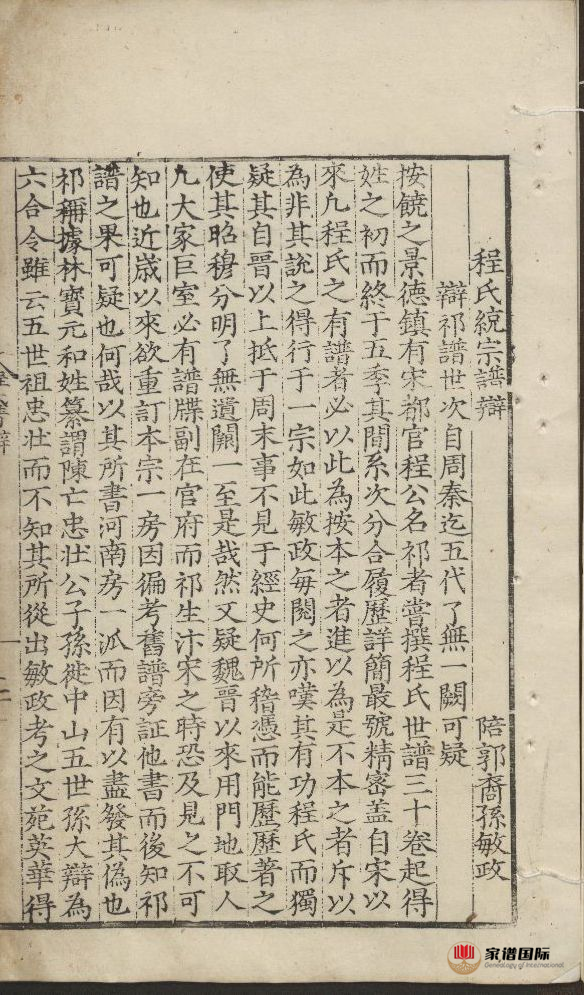 程氏統宗譜辯
陪郭裔孫敏政
辯祁譜世次自周秦迄五代了無一闕可疑
按饒之景德鎮有宋都官程公名祁者嘗撰程氏世譜三十卷起得
姓之初而終于五季其間系次分合履歷詳簡最號精密盖自宋以
來凢程氏之有譜者必以此為按本之者進以為是不本之者斥以
為非其說之得行于一宗如此敏政每閱之亦嘆其有功程氏而獨
疑其自晉以上抵于周末事不見于經史何所稽憑而能歷歷著之
使其昭穆分明了無遺闕一至是哉然又疑魏晉以來用門地取人
凢大家巨室必有譜牒副在官府而祁生汴宋之時恐及見之不可
知也近歲以來欲重訂本宗一房因徧考舊譜旁証他書而後知祁
譜之果可疑也何哉以其所書河南房一派而因有以盡發其偽也
祁稱據林寶元和姓纂謂陳亡忠壯公子孫徙中山五世孫大辯為
六合令雖云五世祖忠壯而不知其所從出敏政考之文苑英華得
家谱国际
Genealogy of International